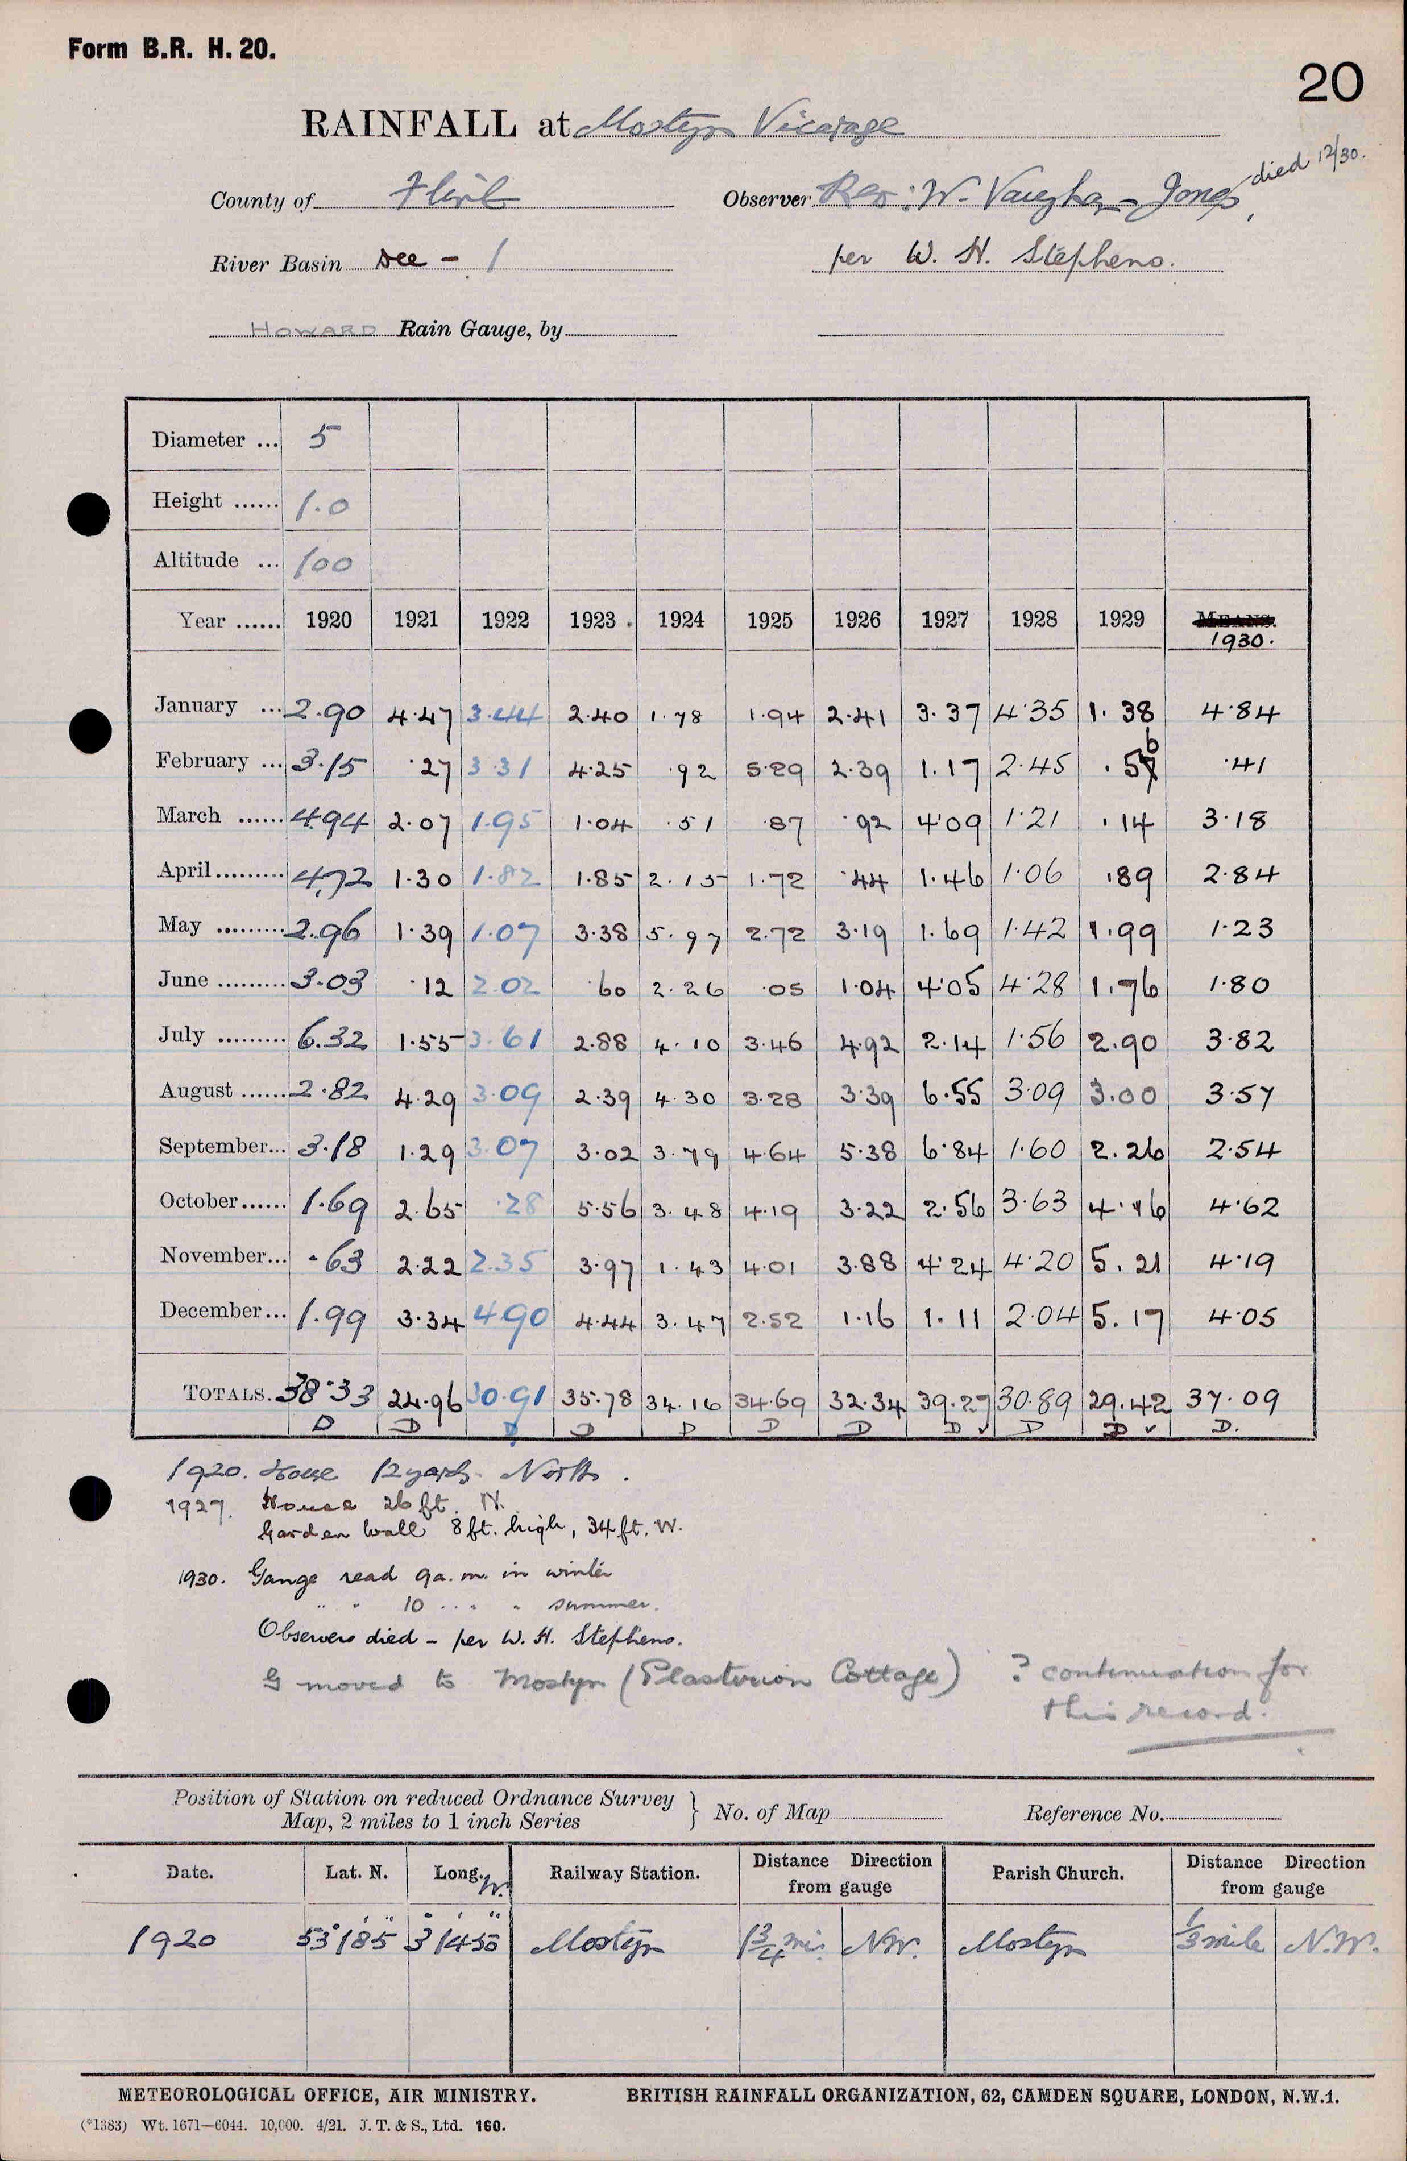 Form B.R. H. 20.
20
RAINFALL at Mostyn Vicarage
died 12/30.
County of Flint Observer Rev: W. Vaughan Jones,
River Basin Dee - 1 per W. H. Stephens.
HOWARD Rain Gauge, by
Diameter ... 5
Height ...... 1.0
Altitude ... 100
Year ...... 1920 1921 1922 1923 . 1924 1925 1926 1927 1928 1929 MEANS.
1930.
January ... 2.90 4.47 3.44 2.40 1.78 1.94 2.41 3.37 4.35 1.38 4.84
February ... 3.15 .27 3.31 4.25 .92 5.29 2.39 1.17 2.45 .56 .41
March ...... 4.94 2.07 1.95 1.04 .51 .87 .92 4.09 1.21 .14 3.18
April......... 4.72 1.30 1.82 1.85 2.15 1.72 .44 1.46 1.06 .89 2.84
May ......... 2.96 1.39 1.07 3.38 5.97 2.72 3.19 1.69 1.42 1.99 1.23
June ......... 3.03 .12 2.02 .60 2.26 .05 1.04 4.05 4.28 1.76 1.80
July ......... 6.32 1.55 3.61 2.88 4.10 3.46 4.92 2.14 1.56 2.90 3.82
August ...... 2.82 4.29 3.09 2.39 4.30 3.28 3.39 6.55 3.09 3.00 3.57
September... 3.18 1.29 3.07 3.02 3.79 4.64 5.38 6.84 1.60 2.26 2.54
October...... 1.69 2.65 .28 5.56 3.48 4.19 3.22 2.56 3.63 4.16 4.62
November... .63 2.22 2.35 3.97 1.43 4.01 3.88 4.24 4.20 5.21 4.19
December... 1.99 3.34 4.90 4.44 3.47 2.52 1.16 1.11 2.04 5.17 4.05
TOTALS. 38.33 24.96 30.91 35.78 34.16 34.69 32.34 39.27 30.89 29.42 37.09
D D D D D D D D ✓ D D ✓ D.
1920. House 12 yards North.
1927. House 26 ft. N.
Garden wall 8 ft. high, 34 ft. W.
1930. Gauge read 9 a.m. in winter
" " 10 " " " summer.
Observer died - per W. H. Stephens.
G moved to Mostyn (Plasterion Cottage) ? continuation for
this record.
Position of Station on reduced Ordnance Survey
Map, 2 miles to 1 inch Series } No. of Map Reference No.
Date. Lat. N. Long. W. Railway Station. Distance Direction from gauge Parish Church. Distance Direction from gauge
1920 53° 18' 5" 3° 14' 50" Mostyn 1 3/4 mi. NW. Mostyn 1/3 mile N.W.
METEOROLOGICAL OFFICE, AIR MINISTRY. BRITISH RAINFALL ORGANIZATION, 62, CAMDEN SQUARE, LONDON, N.W.1.
(*1383) Wt. 1671—6044. 10,000. 4/21. J. T. & S., Ltd. 160.